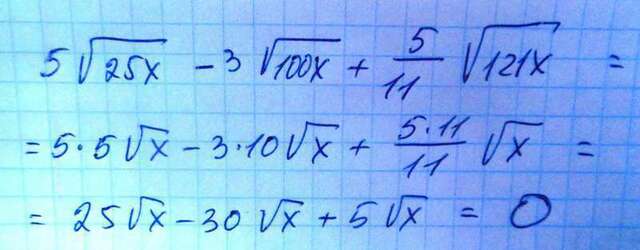 5√25x − 3√100x + 5/11 √121x =
= 5·5√x − 3·10√x + 5·11/11 √x =
= 25√x − 30√x + 5√x = 0